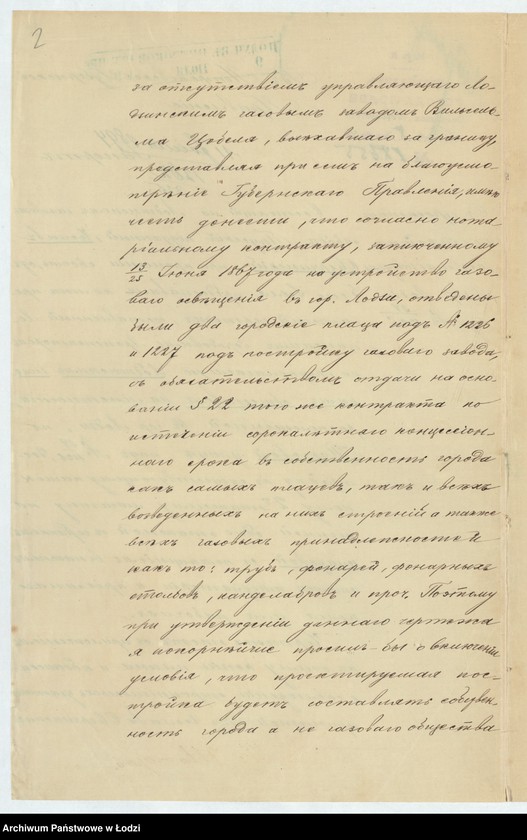 2
за отсутствіемъ управляющаго Ло-
дзинскимъ газовымъ заводомъ Вильгель-
ма Цобеля, выѣхавшаго за границу,
представляя при семъ на благоусмо-
трѣніе Губернскаго Правленія, имѣю
честь донести, что согласно нота-
ріальному контракту, заключенному
13/25 Іюня 1867 года на устройство газо-
ваго освѣщенія въ гор. Лодзи, отведены
были два городскіе плаца подъ № 1226
и 1227 подъ постройку газоваго завода,
съ обязательствомъ отдачи на осно-
ваніи § 22 того же контракта по
истеченіи сорокалѣтняго концессіон-
наго срока въ собственность города
какъ самыхъ плацовъ, такъ и всѣхъ
возведенныхъ на нихъ строеній а также
всѣхъ газовыхъ принадлежностей
какъ то: трубъ, фонарей, фонарныхъ
столбовъ, канделабровъ и проч. Поэтому
при утвержденіи даннаго чертежа
я покорнѣйше просилъ-бы о включеніи
условія, что проектируемая пос-
тройка будетъ составлять собствен-
ность города а не газоваго общества
Archiwum Państwowe w Łodzi